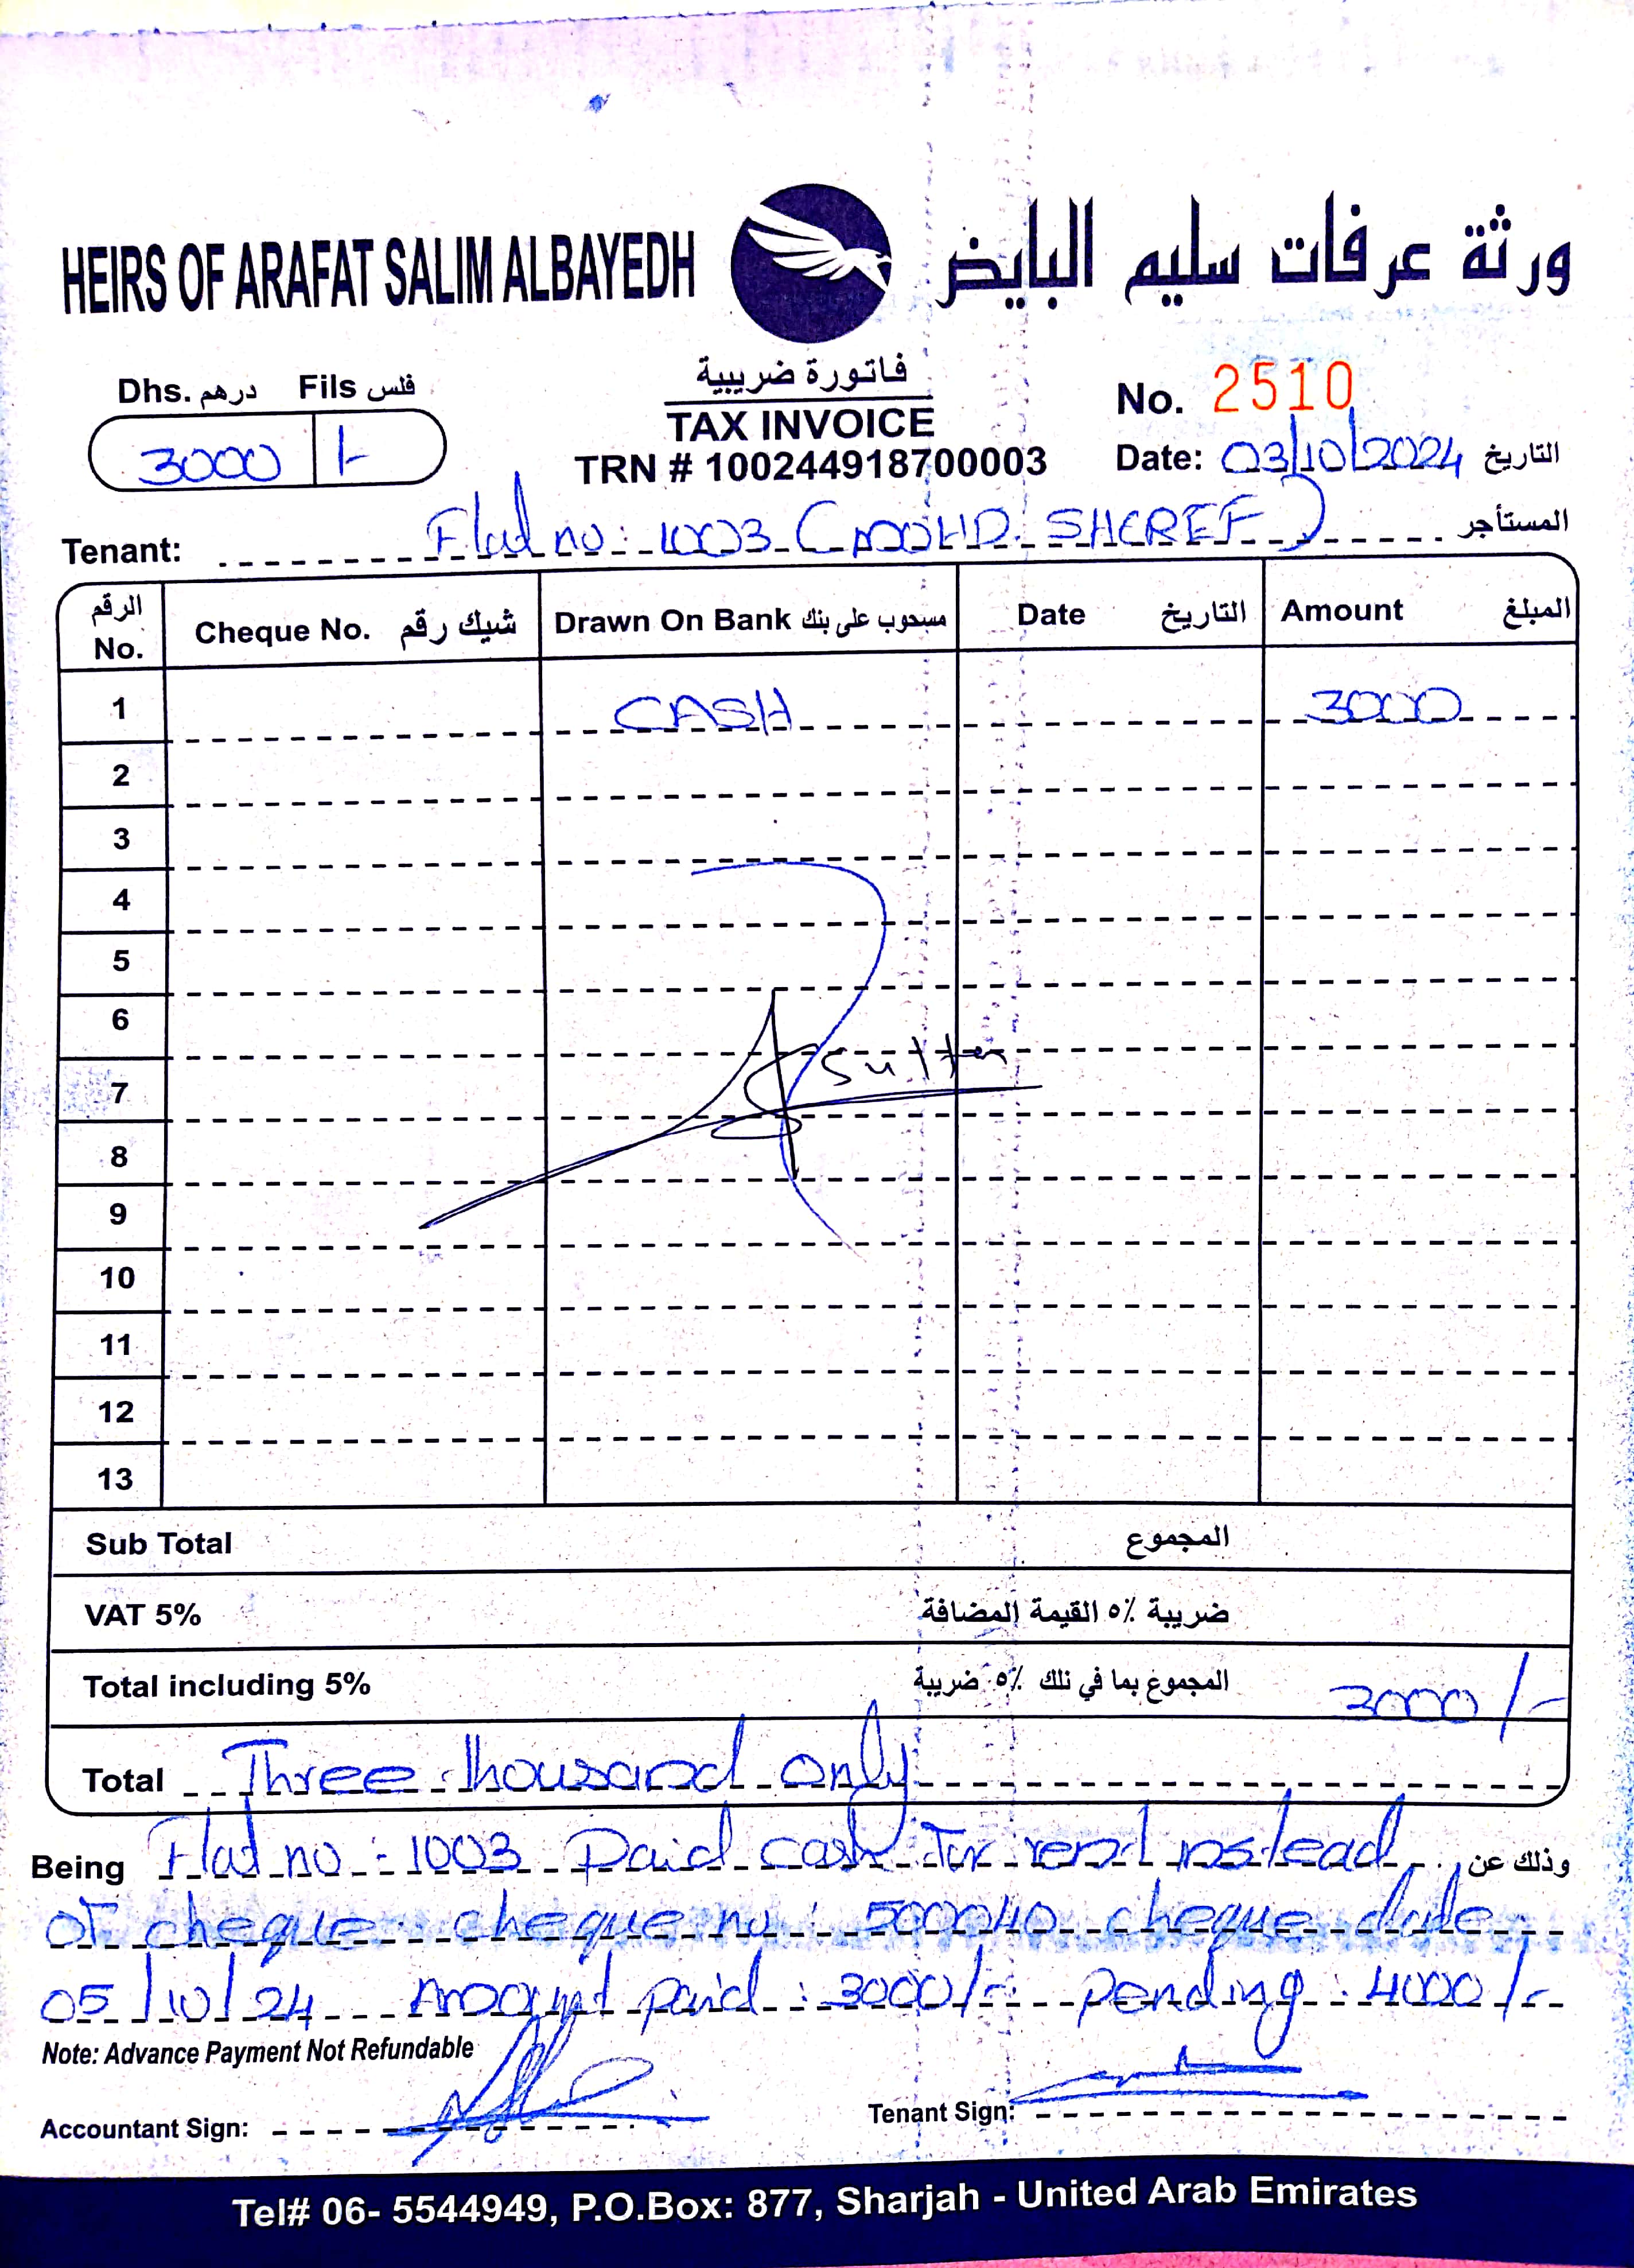 HEIRS OF ARAFAT SALIM ALBAYEDH ورثة عرفات سليم البايض
Dhs. درهم Fils فلس
3000 /-
فاتورة ضريبية
TAX INVOICE
TRN # 100244918700003
No. 2510
Date: 03/10/2024 التاريخ
Tenant: Flat no: 1003 (MOHD. SHEREF) المستأجر
الرقم No. Cheque No. شيك رقم Drawn On Bank مسحوب على بنك Date التاريخ Amount المبلغ
1 CASH 3000
2
3
4
5
6
7
8
9
10
11
12
13
Sub Total المجموع
VAT 5% ضريبة ٥% القيمة المضافة
Total including 5% المجموع بما في ذلك ٥% ضريبة 3000/-
Total Three thousand only
Being Flat no: 1003 Paid cash for rent instead وذلك عن
of cheque. cheque no: 500040 cheque date
05/10/24 Amount paid: 3000/- pending: 4000/-
Note: Advance Payment Not Refundable
Accountant Sign: Tenant Sign:
Tel# 06- 5544949, P.O.Box: 877, Sharjah - United Arab Emirates